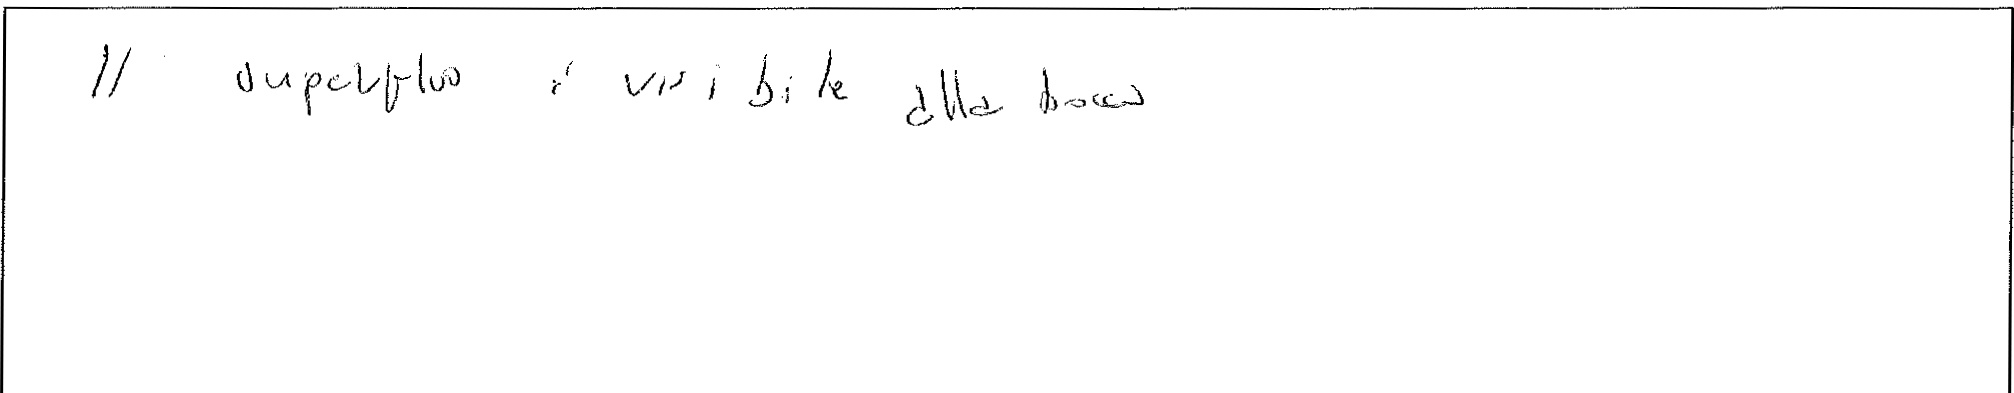 Il superfluo è visibile alla bocca